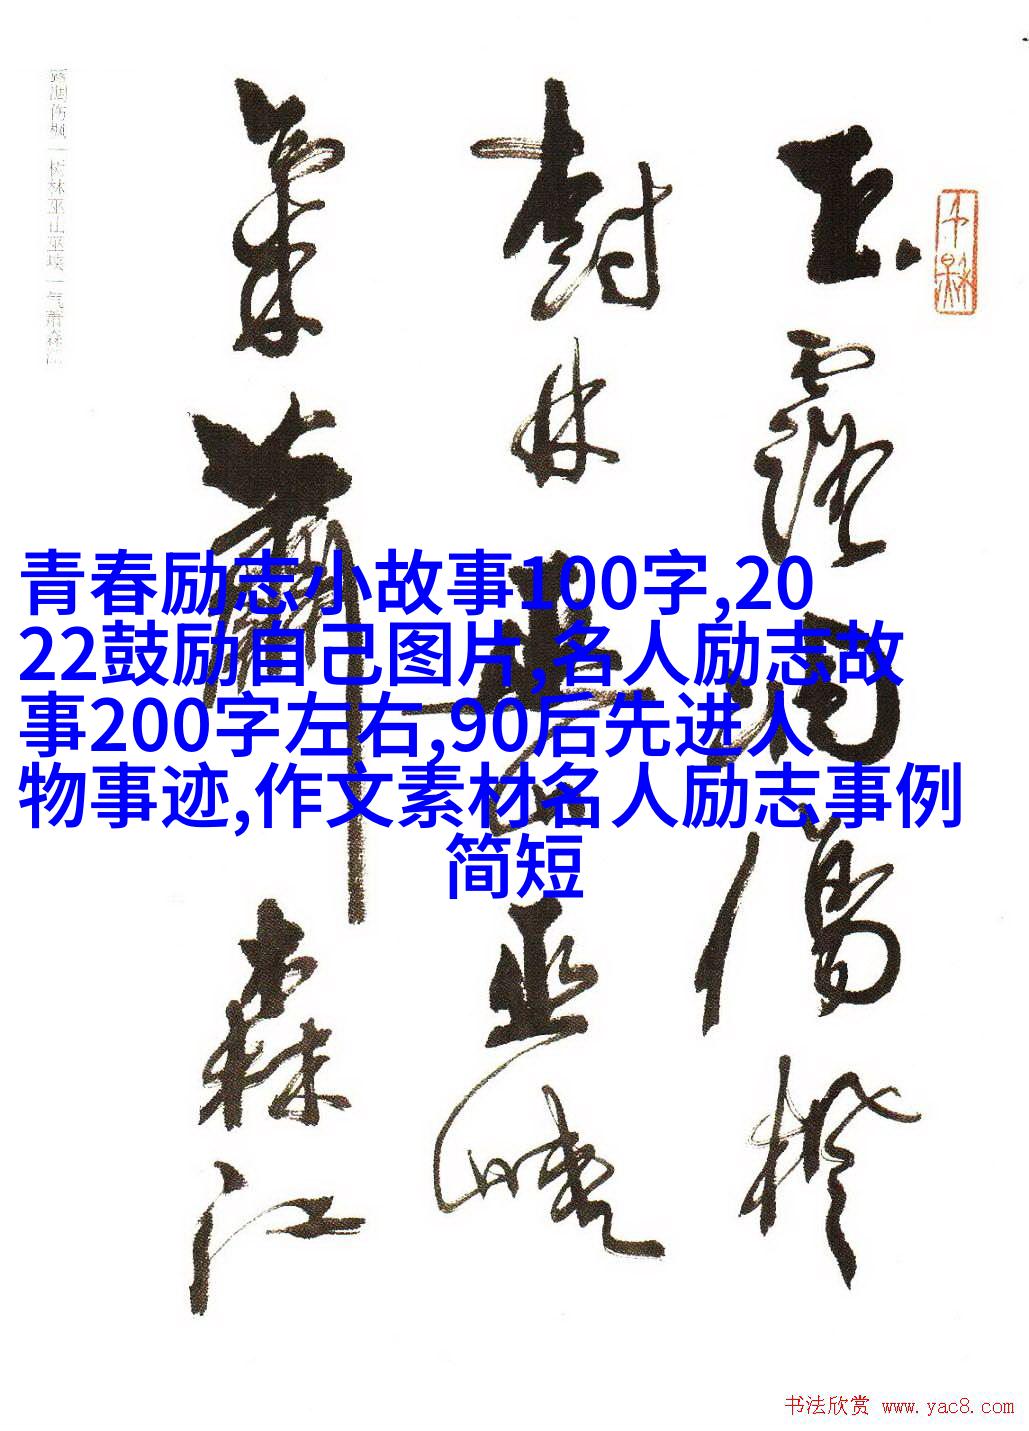 玉露凋傷楓
樹林巫山巫峽
氣蕭森江
露凋伤枫一树林巫山巫峡一气萧森江
青春励志小故事100字,20
22鼓励自己图片,名人励志故
事200字左右,90后先进人
物事迹,作文素材名人励志事例
简短
书法欣赏 www.yac8.com